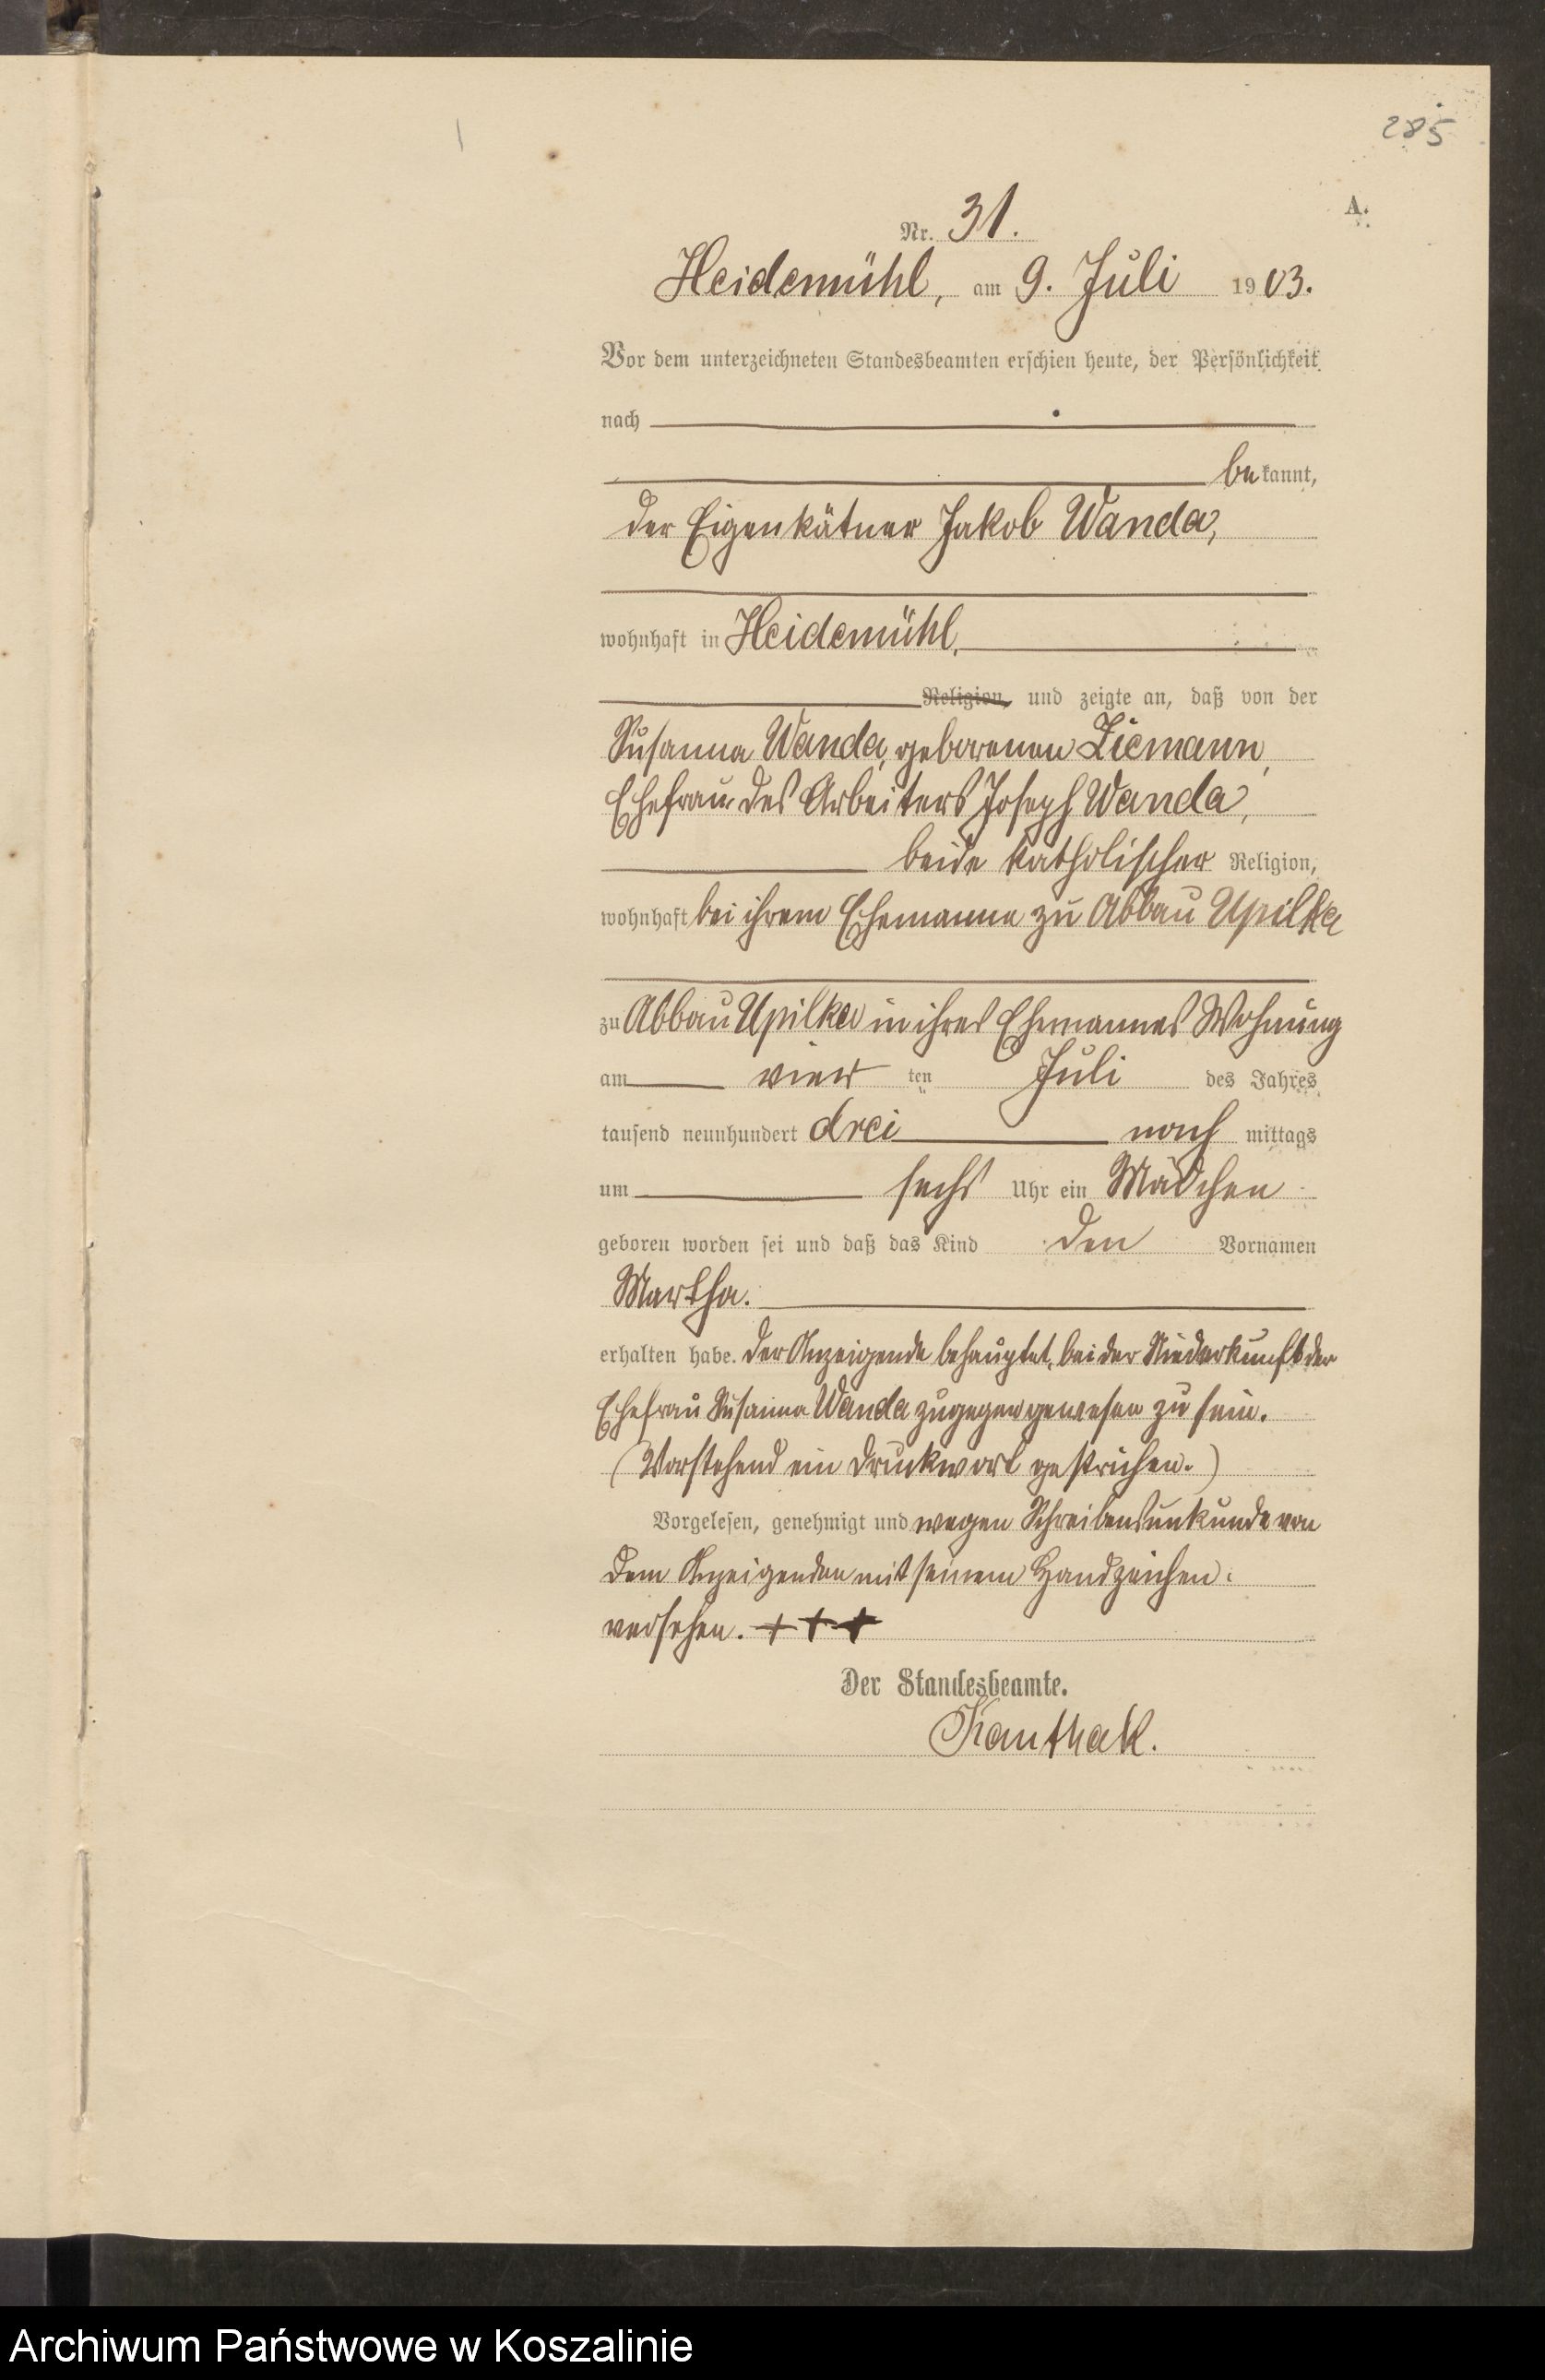 285
A.
Nr. 31.
Heidemühl, am 9. Juli 1903.
Vor dem unterzeichneten Standesbeamten erschien heute, der Persönlichkeit
nach
bekannt,
der Eigenkätner Jakob Wanda,
wohnhaft in Heidemühl,
Religion, und zeigte an, daß von der
Susanna Wanda, geborenen Ziemann,
Ehefrau des Arbeiters Joseph Wanda,
beide katholischer Religion,
wohnhaft bei ihrem Ehemanne zu Abbau Upilka
zu Abbau Upilka in ihres Ehemannes Wohnung
am vier ten Juli des Jahres
tausend neunhundert drei nach mittags
um sechs Uhr ein Mädchen
geboren worden sei und daß das Kind den Vornamen
Martha.
erhalten habe. Der Anzeigende behauptet, bei der Niederkunft der
Ehefrau Susanna Wanda zugegen gewesen zu sein.
(Vorstehend ein Druckwort gestrichen.)
Vorgelesen, genehmigt und wegen Schreibensunkunde von
dem Anzeigenden mit seinem Handzeichen
versehen. + + +
Der Standesbeamte.
Kanthak.
Archiwum Państwowe w Koszalinie